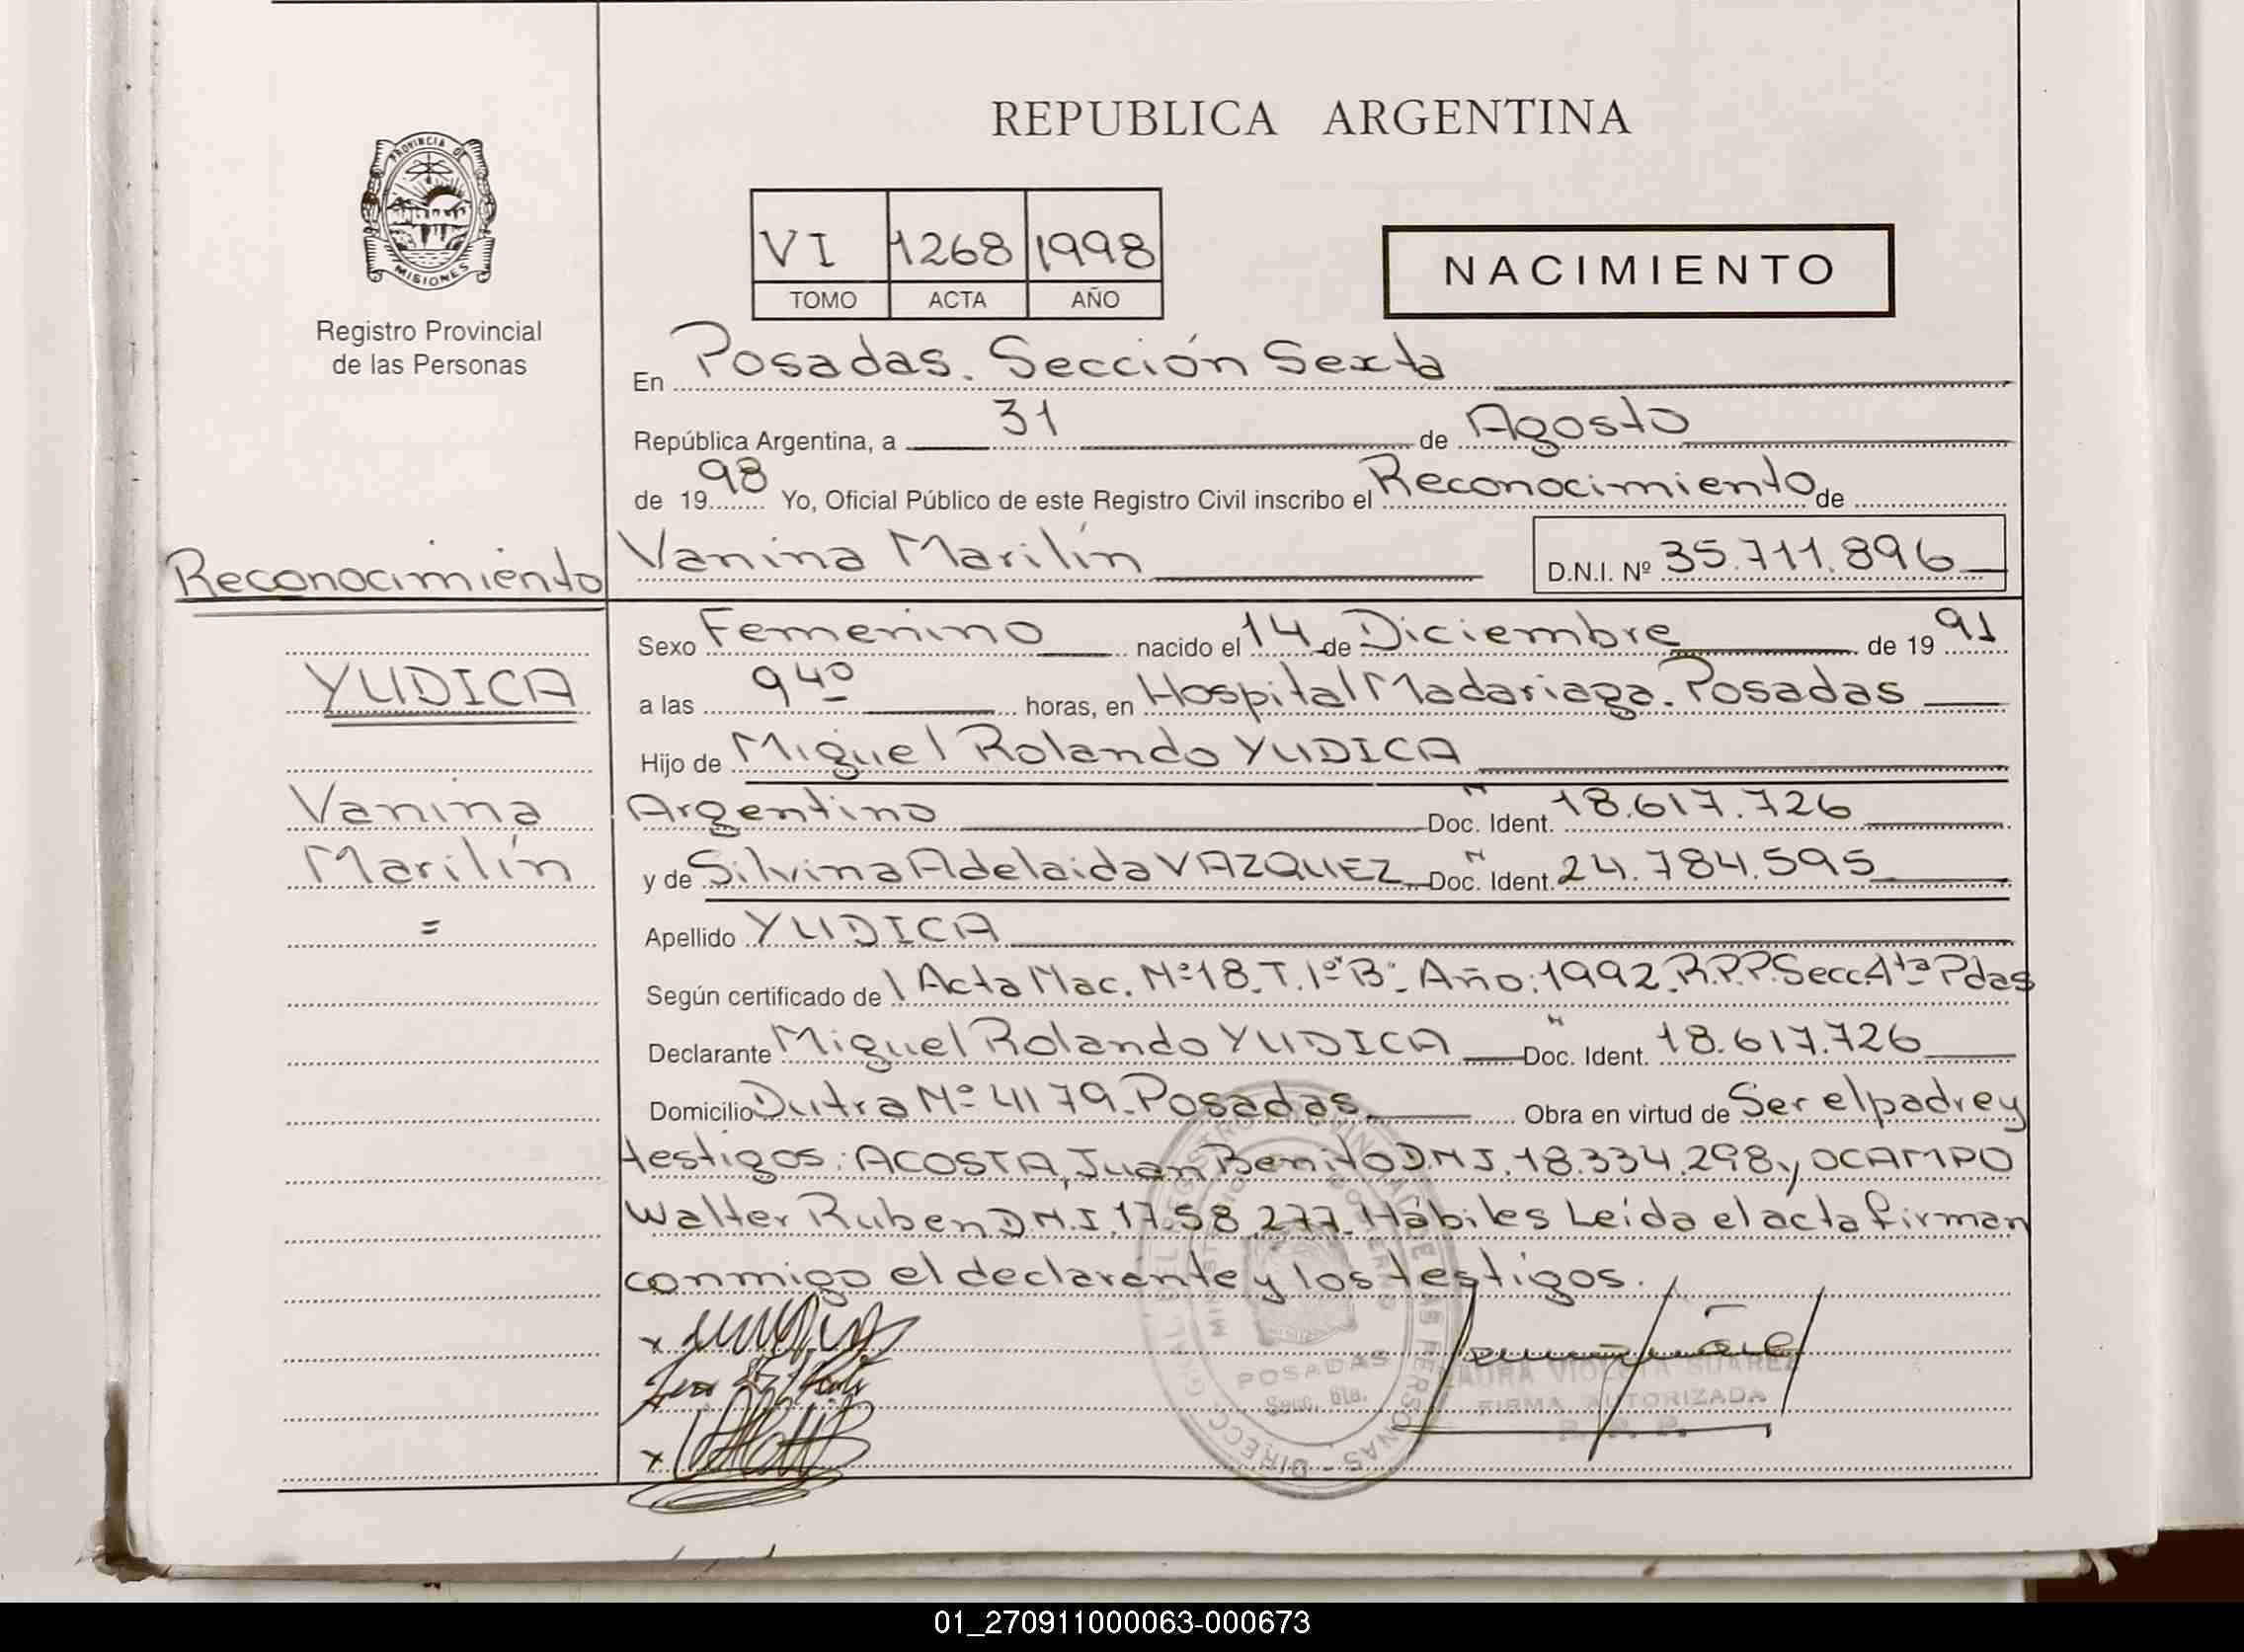 REPUBLICA ARGENTINA
PROVINCIA DE
MISIONES
Registro Provincial
de las Personas
VI 1268 1998
TOMO ACTA AÑO
NACIMIENTO
En Posadas. Sección Sexta
República Argentina, a 31 de Agosto
de 1998 Yo, Oficial Público de este Registro Civil inscribo el Reconocimiento de
Vanina Marilín D.N.I. Nº 35.711.896
Reconocimiento
YUDICA
Vanina
Marilín
=
Sexo Femenino nacido el 14 de Diciembre de 1991
a las 9 40 horas, en Hospital Madariaga. Posadas
Hijo de Miguel Rolando YUDICA
Argentino Doc. Ident. 18.617.726
y de Silvina Adelaida VAZQUEZ Doc. Ident. 24.784.595
Apellido YUDICA
Según certificado de Acta Nac. Nº 18. T. 1º "B". Año: 1992. R.P.P. Secc. 4ta Pdas
Declarante Miguel Rolando YUDICA Doc. Ident. 18.617.726
Domicilio Dutra Nº 4179. Posadas. Obra en virtud de Ser el padre y
testigos: ACOSTA, Juan Benito D.N.I. 18.334.298 y OCAMPO
Walter Ruben D.N.I. 17.58.277. Hábiles Leída el acta firman
conmigo el declarante y los testigos.
POSADAS
Secc. 6ta.
LAURA VIOLETA SUAREZ
FIRMA AUTORIZADA
R. P. P.
01_270911000063-000673